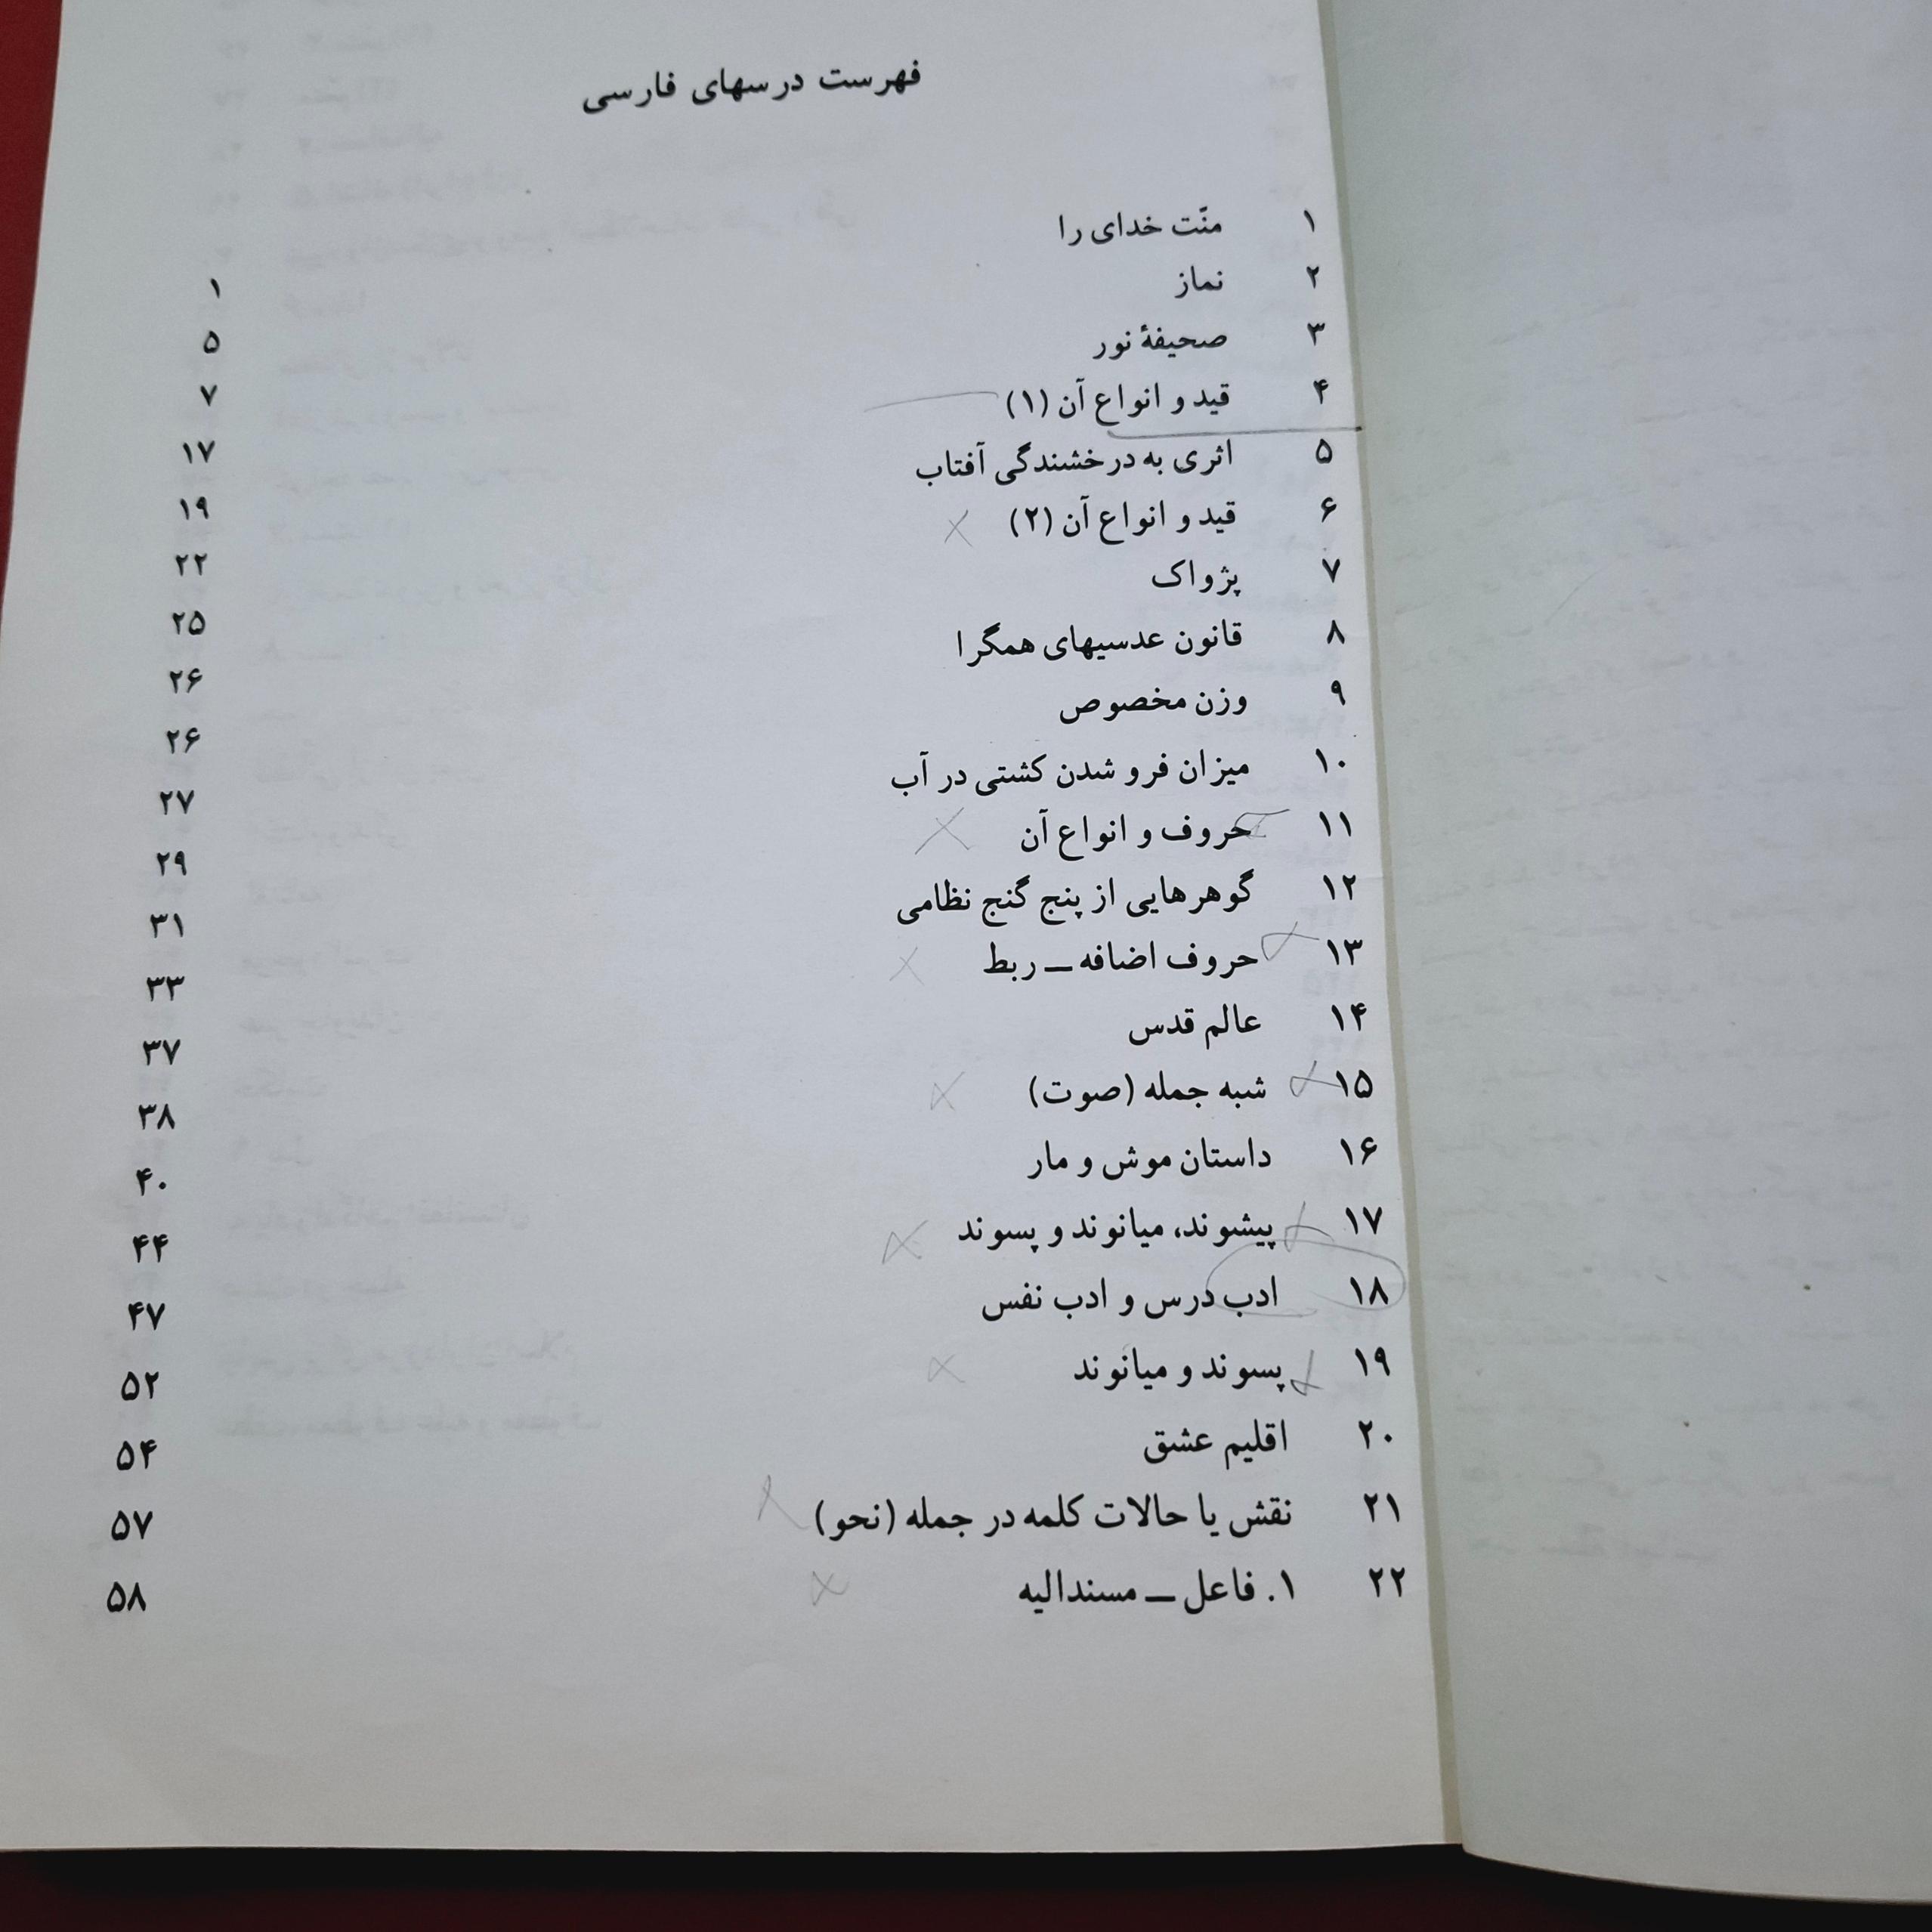 فهرست درسهای فارسی
۱ منّت خدای را ۱
۲ نماز ۵
۳ صحیفهٔ نور ۷
۴ قید و انواع آن (۱) ۱۷
۵ اثری به درخشندگی آفتاب ۱۹
۶ قید و انواع آن (۲) ۲۲
۷ پژواک ۲۵
۸ قانون عدسیهای همگرا ۲۶
۹ وزن مخصوص ۲۶
۱۰ میزان فرو شدن کشتی در آب ۲۷
۱۱ حروف و انواع آن ۲۹
۱۲ گوهرهایی از پنج گنج نظامی ۳۱
۱۳ حروف اضافه ــ ربط ۳۳
۱۴ عالم قدس ۳۷
۱۵ شبه جمله (صوت) ۳۸
۱۶ داستان موش و مار ۴۰
۱۷ پیشوند، میانوند و پسوند ۴۴
۱۸ ادب درس و ادب نفس ۴۷
۱۹ پسوند و میانوند ۵۲
۲۰ اقلیم عشق ۵۴
۲۱ نقش یا حالات کلمه در جمله (نحو) ۵۷
۲۲ ۱. فاعل ــ مسندالیه ۵۸